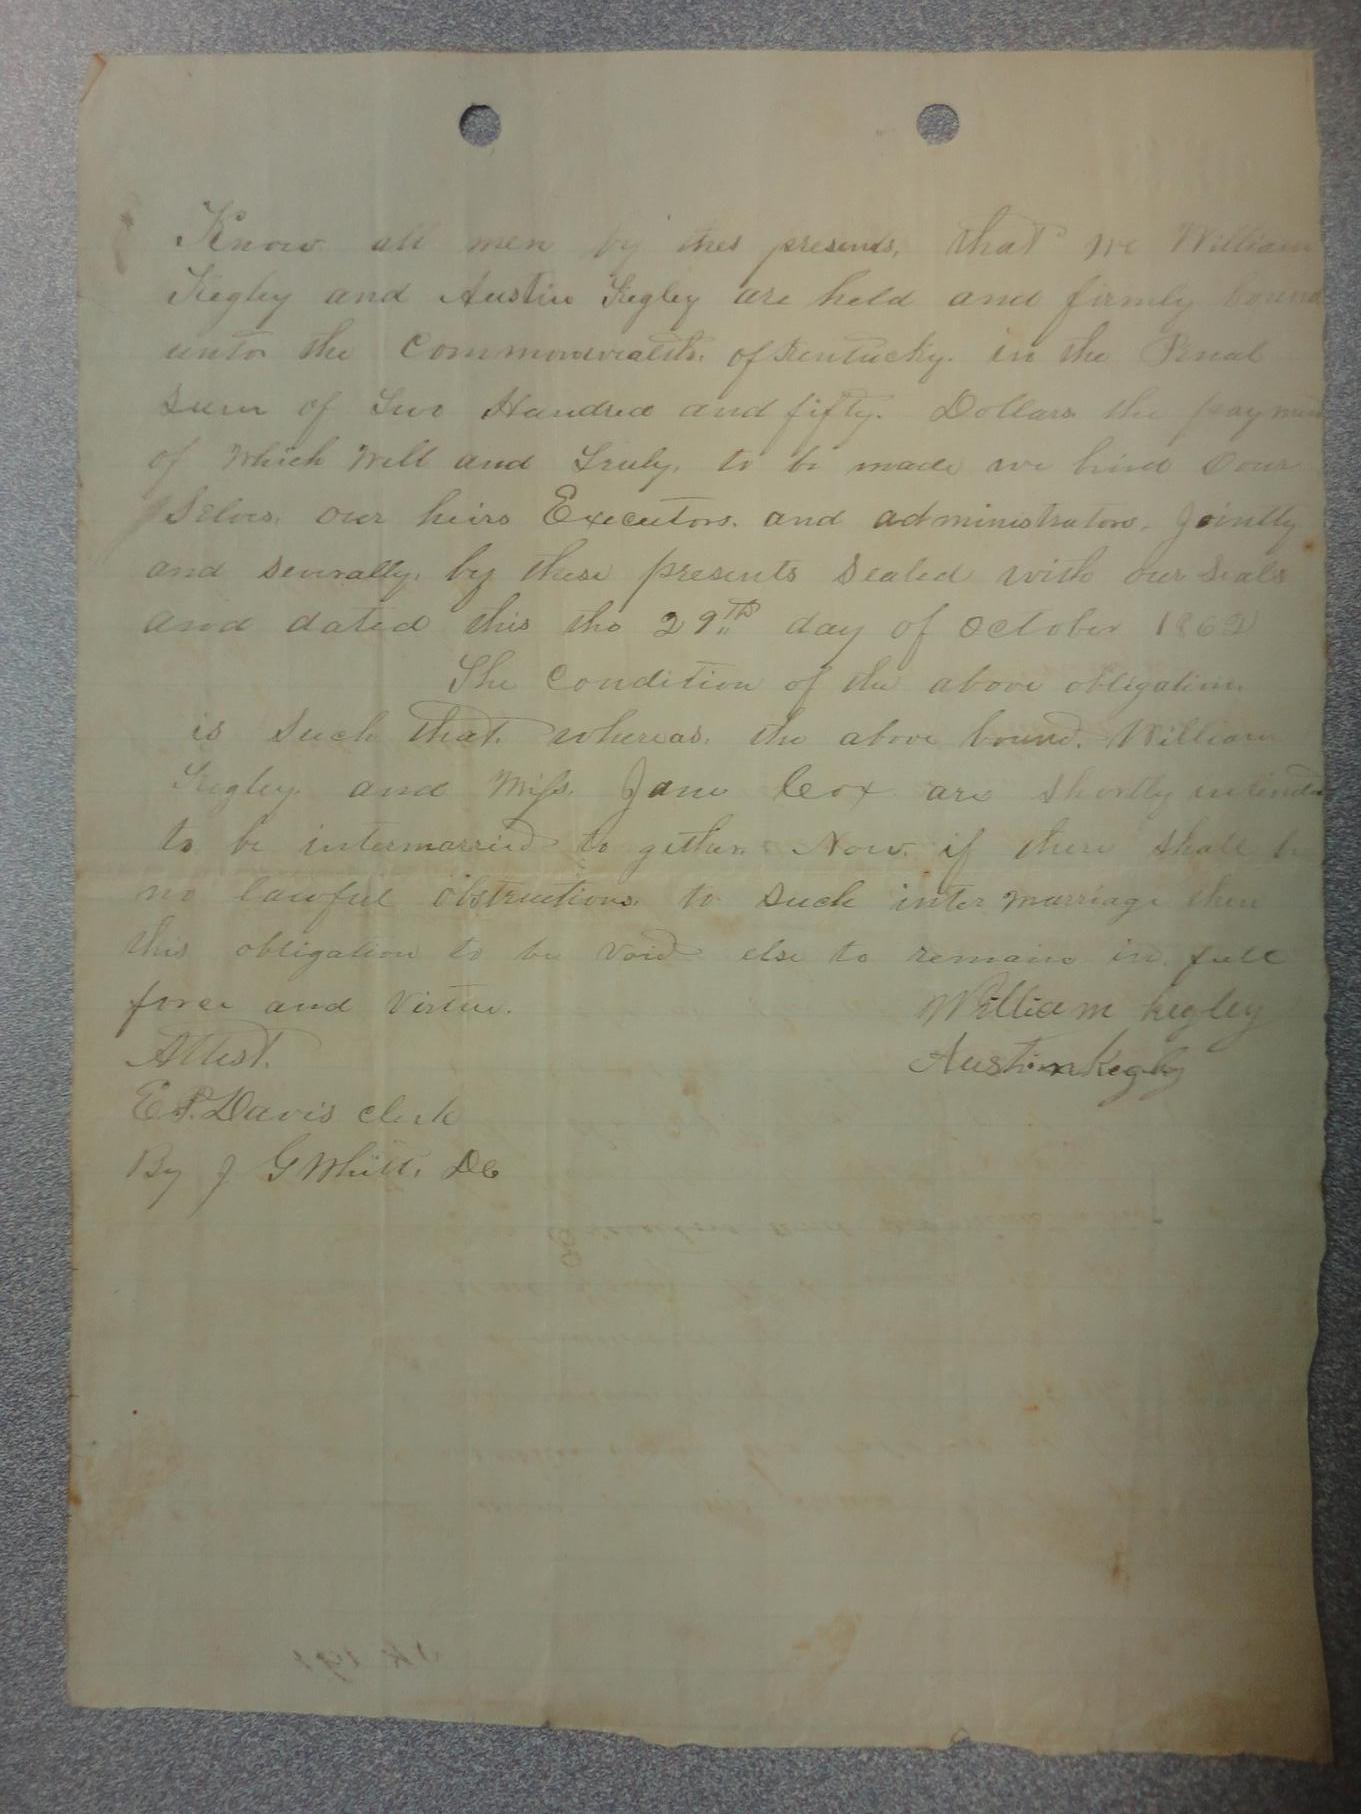 Know all men by thes presents, that we William
Kegley and Austin Kegley are held and firmly bound
unto the Commonwealth. of Kentucky. in the Penal
Sum of Two Hundred and fifty. Dollars the payment
of Which Well and Truly, to be made we bind our
Selves, our heirs Executors. and administrators, Jointly
and severally, by these presents Sealed with our Seals
and dated this the 29th day of October 1862
The Condition of the above obligation
is Such that, whereas, the above bound. William
Kegley and Miss. Jane Cox are Shortly
to be intermarried to gether. Now. if there Shall be
no lawful obstructions to Such inter marriage then
this obligation to be void else to remain in full
force and Virtue. William Kegley
Attest. Austin Kegley
E P. Davis Clerk
By J G Whitt, DC